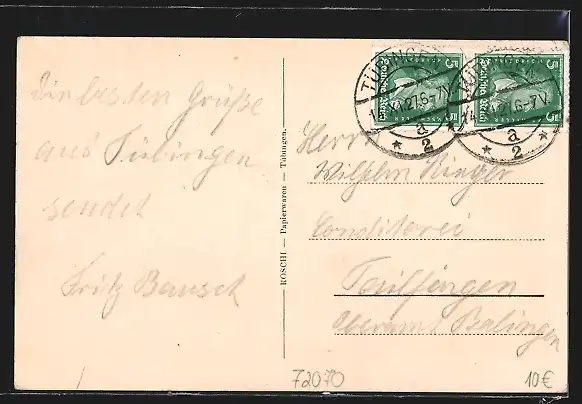 Die besten Grüße
aus Tübingen
sendet
Fritz Bausch
KOSCHI — Papierwaren — Tübungen.
TÜBINGEN
27.6-7V.
a
* 2 *
6-7V.
a
* 2 *
5 Deutsches Reich 5
5 Deutsches Reich 5
Herrn
Wilhelm Ringer
Conditorei
Tailfingen
Oberamt Balingen
72070
10€